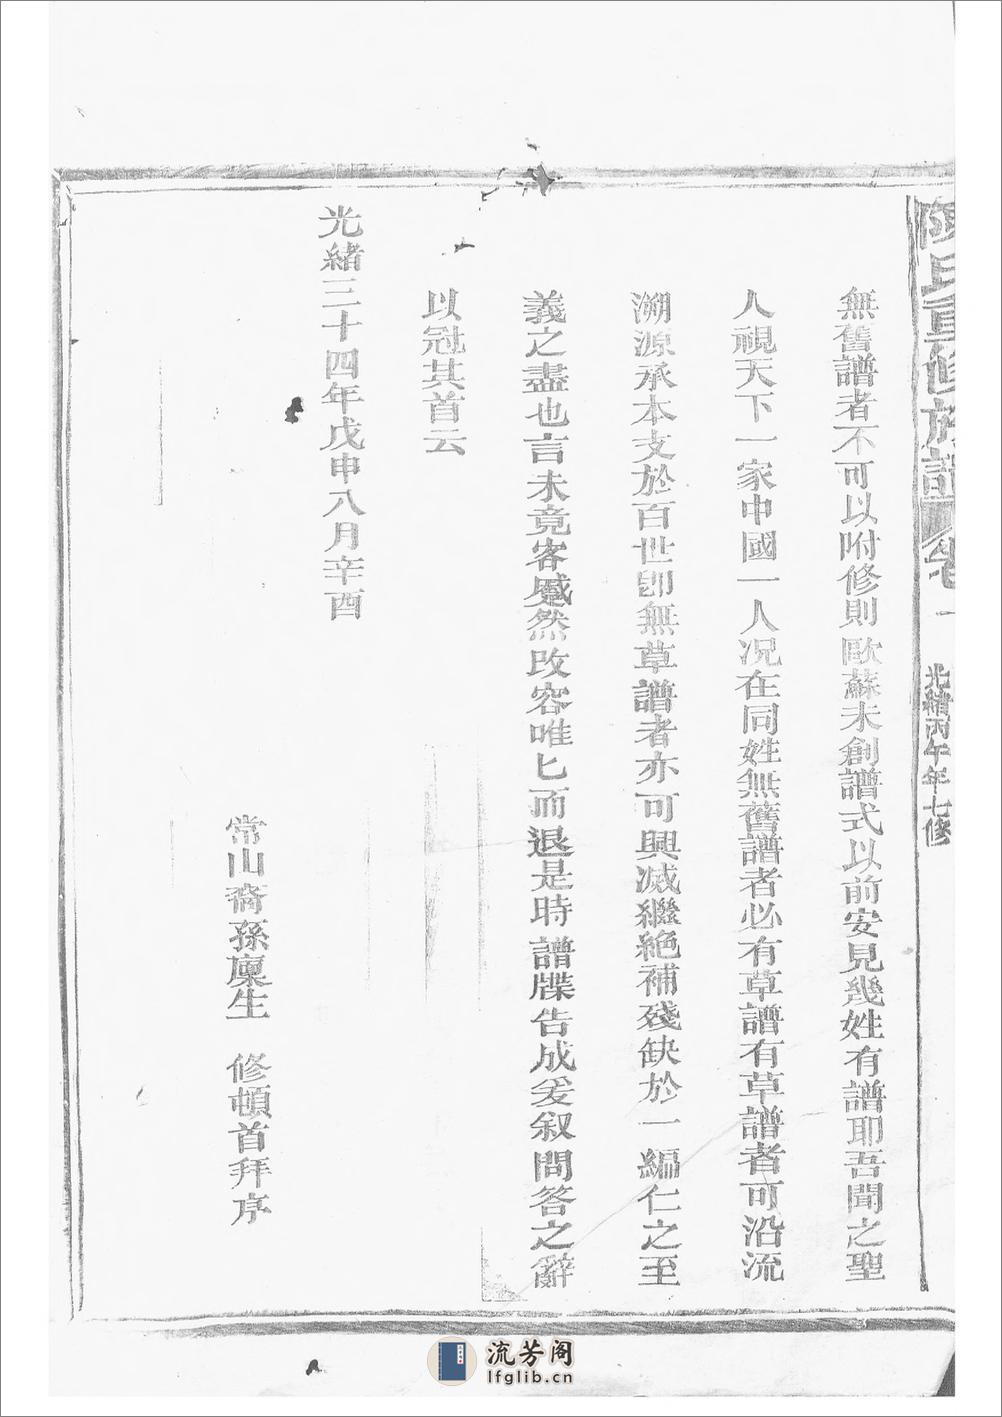 氏重修族譜 卷一 光緒丙午年七修
無舊譜者不可以附修則歐蘇未創譜式以前安見幾姓有譜耶吾聞之聖
人視天下一家中國一人况在同姓無舊譜者必有草譜有草譜者可沿流
溯源承本支於百世卽無草譜者亦可興滅繼絶補殘缺於一編仁之至
義之盡也言未竟客蹙然改容唯匕而退是時譜牒告成爰叙問答之辭
以冠其首云
光緒三十四年戊申八月辛酉
常山裔孫廩生 修頓首拜序
流芳阁
lfglib.cn